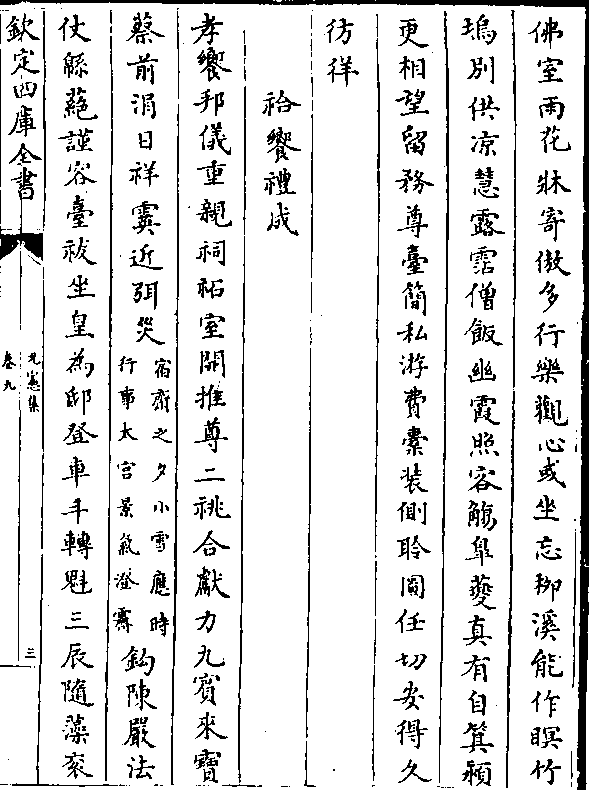 佛室雨花牀寄傲多行樂觀心或坐忘栁溪能作暝竹
塢别供凉慧露霑僧飯幽霞照客觴臯夔真有自箕潁
更相望留務尊臺簡私游費橐裝側聆圖任切安得久
彷徉
祫饗禮成
孝饗邦儀重親祠祏室開推尊二祧合獻力九賓來寶
蔡前涓日祥霙近弭災宿齋之夕小雪應時行事太宫景氣澄霽鈎陳嚴法
仗緜蕝謹容臺祓坐皇為邸登車斗轉魁三辰隨藻衮
欽定四庫全書
元憲集
卷九
三